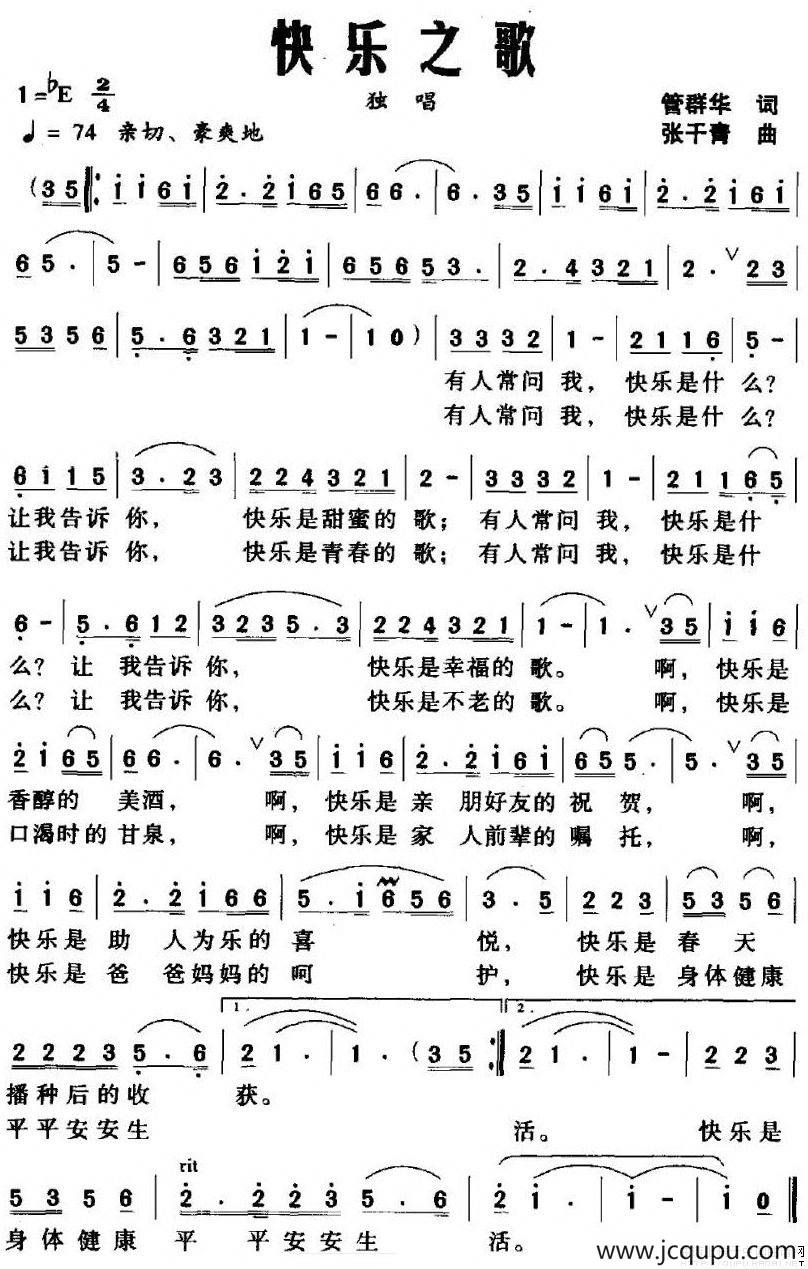 快乐之歌
1=♭E 2/4
独 唱
管群华 词
♩= 74 亲切、豪爽地
张干青 曲
(35 |: i i6i | 2·2i65 | 66· | 6·35 | i i6i | 2·2i6i |
65· | 5- | 656i2i | 65653· | 2·4321 | 2·∨23 |
5356 | 5·6321 | 1- | 10) | 3332 | 1- | 2116 | 5- |
有人常问我，快乐是什么？
有人常问我，快乐是什么？
6i15 | 3·23 | 224321 | 2- | 3332 | 1- | 21165 |
让我告诉你， 快乐是甜蜜的歌；有人常问我，快乐是什
让我告诉你， 快乐是青春的歌；有人常问我，快乐是什
6- | 5·612 | 3235·3 | 224321 | 1- | 1·∨35 | ii6 |
么？让 我告诉你， 快乐是幸福的歌。 啊，快乐是
么？让 我告诉你， 快乐是不老的歌。 啊，快乐是
2i65 | 66· | 6·∨35 | ii6 | 2·2i6i | 655· | 5·∨35 |
香醇的 美酒， 啊，快乐是亲 朋好友的祝贺， 啊，
口渴时的甘泉， 啊，快乐是家 人前辈的嘱托， 啊，
ii6 | 2·2i66 | 5·i656 | 3·5 | 223 | 5356 |
快乐是 助 人为乐的喜 悦， 快乐是 春 天
快乐是 爸 爸妈妈的呵 护， 快乐是 身体健康
1. 2.
22235·6 | 21· | 1·(35 :| 21· | 1- | 223 |
播种后的收 获。
平平安安生 活。 快乐是
rit
5356 | 2·2235·6 | 2i· | i-i- | i0 ‖
身体健康 平 平安安生 活。
www.jcqupu.com